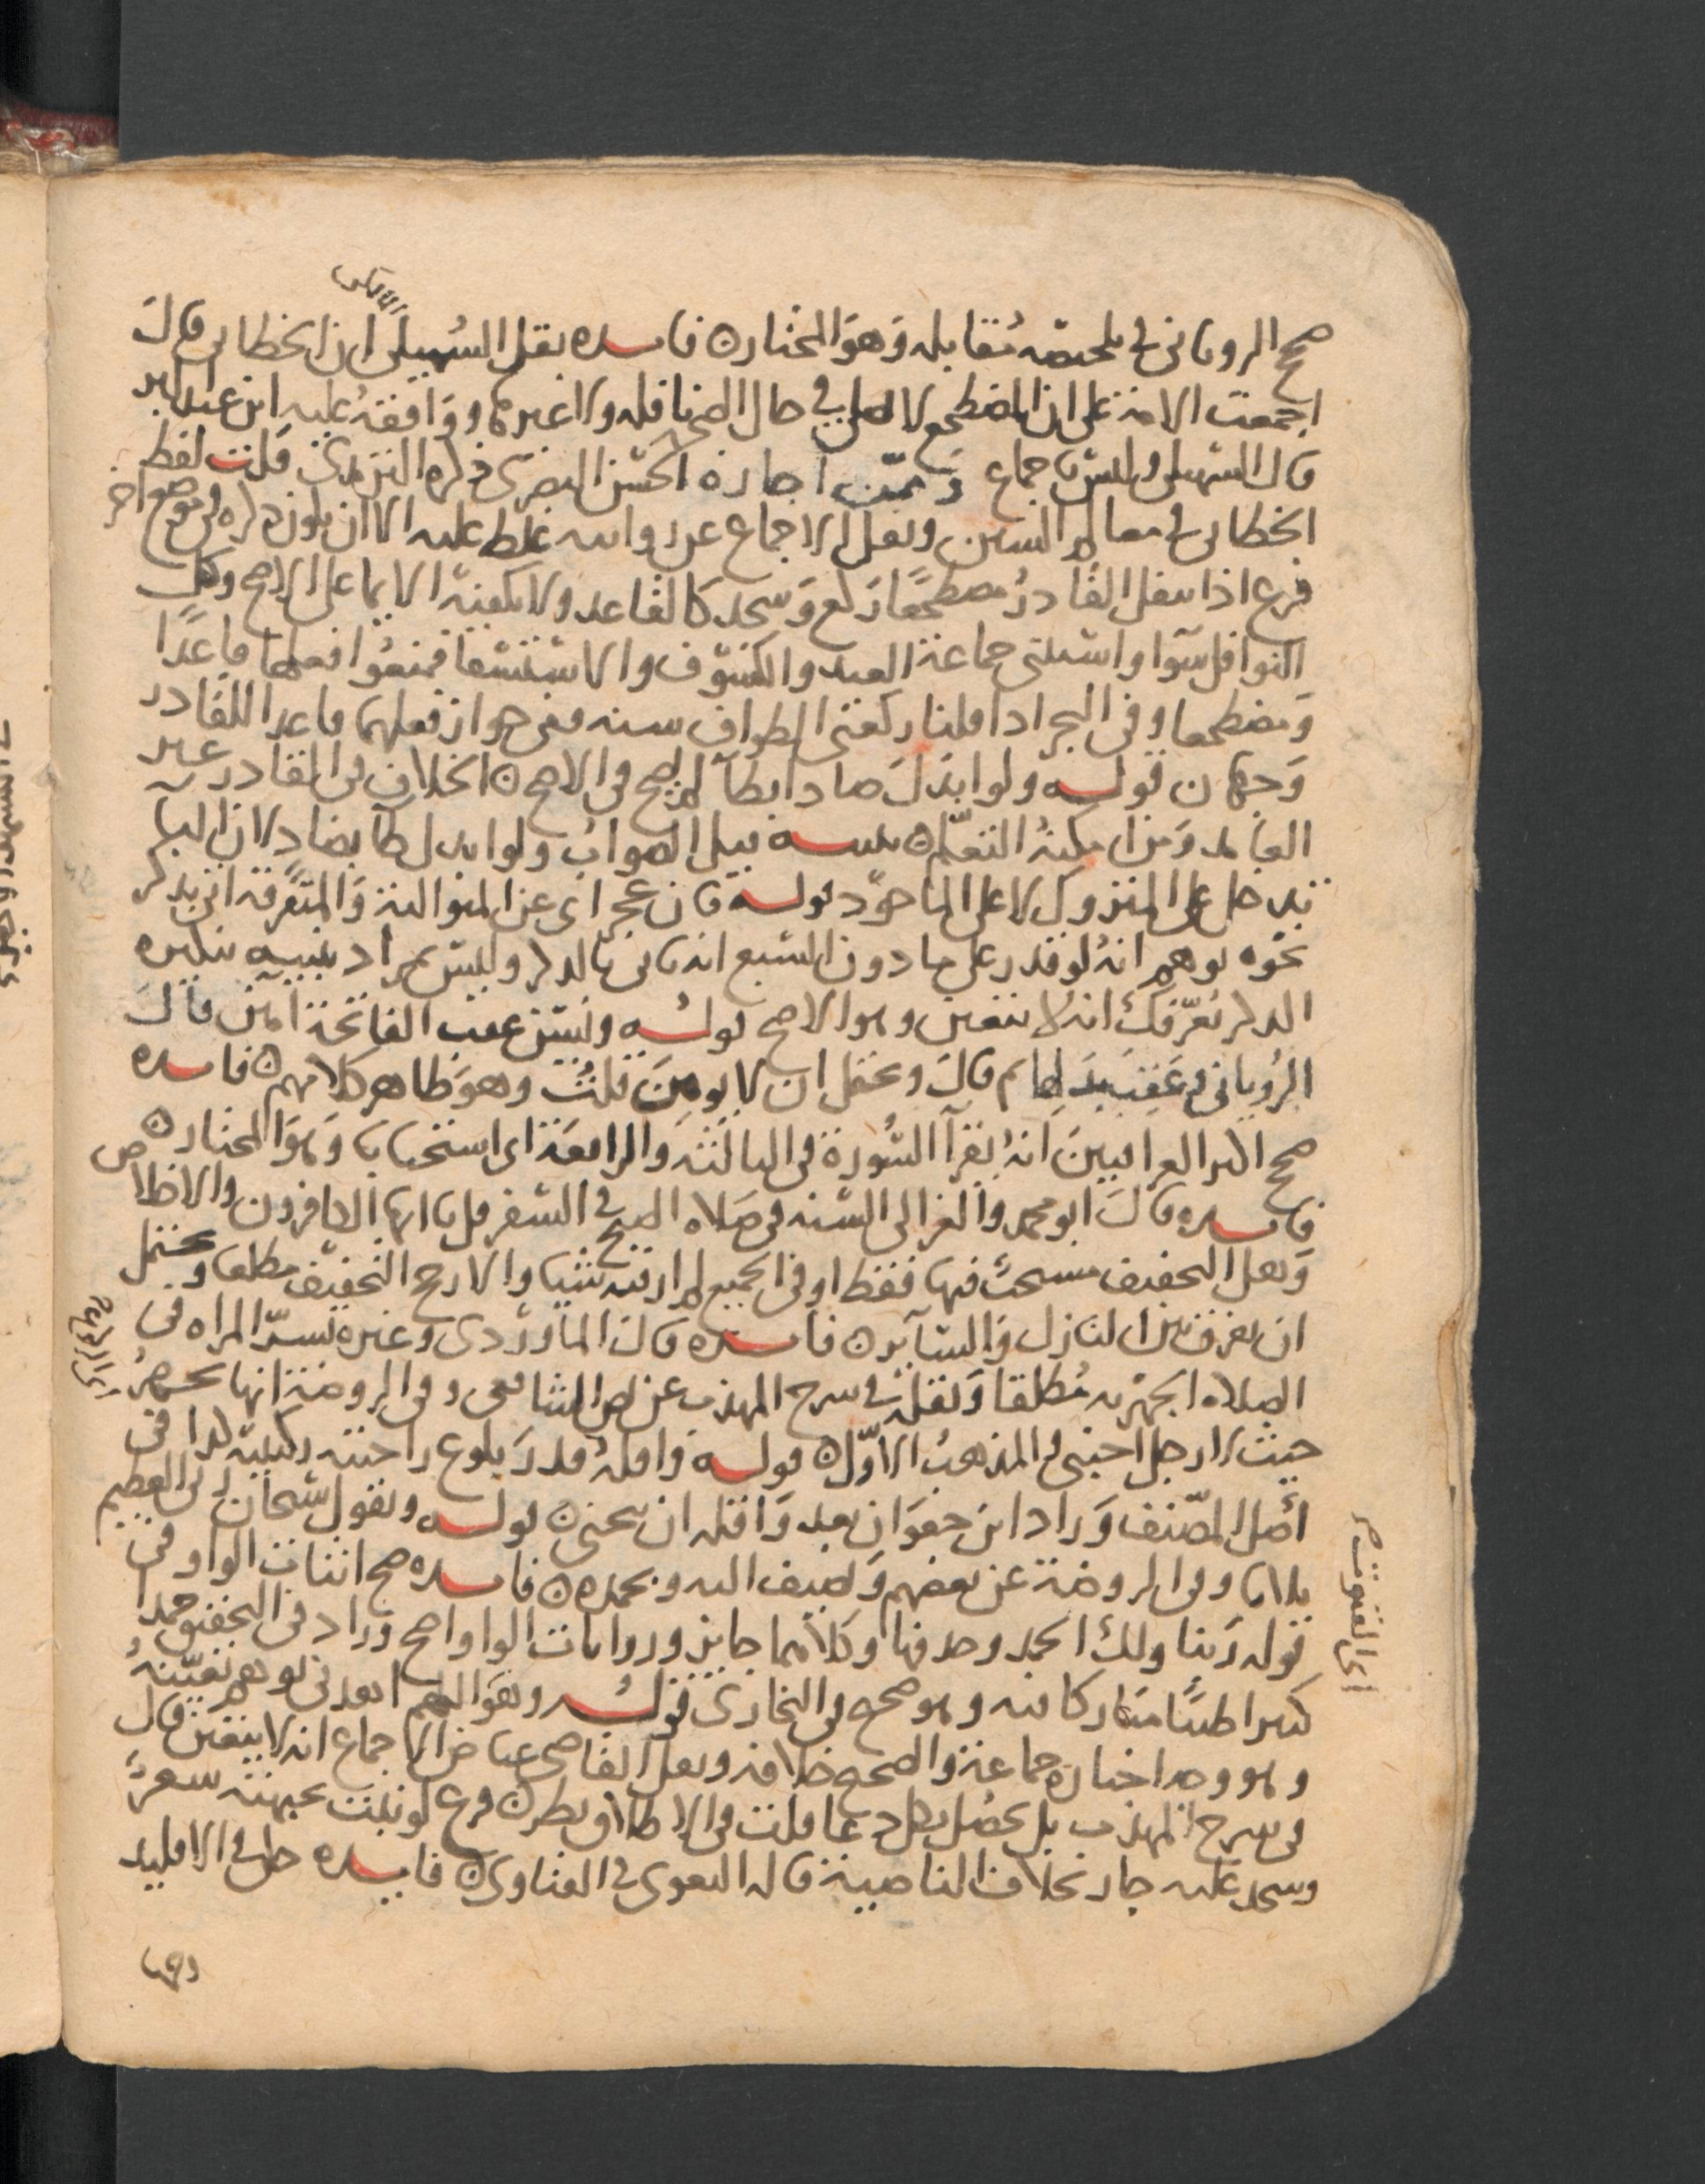 صحح الروياني في تلخيصه مقابله وهو المختار فايده نقل السهيلي ان الخطابي قال
اجمعت الامة على ان المضطجع لا يصلي في حال الصحة نافله ولا غيرها ووافقه عليه ابن عبد البر
قال السهيلي وليس باجماع وممن اجازه الحسن البصري ذكره الترمذي قلت لفظ
الخطابي في معالم السنن ونقل الاجماع عن روايته غلط عليه الا ان يكون ذكره في موضع اخر
فرع اذا تنفل القادر مضطجعا ركع وسجد كالقاعد ولا يكفيه الايما على الاصح وكل
النوافل سوا واستثنى جماعة العيد والكسوف والاستسقا فمنعوا فعلها قاعدا
ومضطجعا وفي البحر اذا قلنا ركعتي الطواف سنه ففي جواز فعلهما قاعدا للقادر
وجهان قوله ولو ابدل ضادا بظا لم يصح في الاصح الخلاف في القادر غير
العامد ومن امكنه التعلم تنبيه قيل الصواب ولو ابدل ظا بضاد لان البا
تدخل على المتروك لا على الماخوذ قوله فان عجز اى عن المتوالية والمتفرقة اتى بذكر
نحوه يوهم انه لو قدر على ما دون السبع انه ياتي بالذكر وليس بمراد تنبيه تنكيره
الذكر يعرفك انه لا يتعين وهو الاصح قوله ويسن عقب الفاتحة امين قال
الروياني في عقب بدلها ثم قال ويحتمل ان لا يومن قلت وهو ظاهر كلامهم فايده
صحح اكثر العراقيين انه يقرأ السورة في الثالثة والرابعة اى استحبابا وهو المختار
فايده قال ابو محمد والغزالي السنه في صلاة الصبح في السفر قل يا ايها الكافرون والاخلاص
وهل التخفيف مستحب فيها فقط او في الجميع لم ار فيه شيا والارجح التخفيف مطلقا ويحتمل
ان يفرق بين النازل والساير فايده قال الماوردي وغيره تسر المراه في
الصلاه الجهريه مطلقا ونقله في شرح المهذب عن نص الشافعي وفي الروضة انها تجهر
حيث لا رجل اجنبي في المذهب الاول قوله واقله قدر بلوغ راحتيه ركبتيه كذا في
أصل المصنف وزاد ابن جعوان بعد واقله ان ينحني قوله ويقول سبحان ربي العظيم
ثلاثا وفي الروضة عن بعضهم ويضيف اليه وبحمده فايده صح اثبات الواو في
قوله ربنا ولك الحمد وحذفها وكلاهما جايز وروايات الواو اصح وزاد في التحقيق حمدا
كثيرا طيبا مباركا فيه وهو صحيح في البخاري قوله وهو اللهم اهدني يوهم تعينه
وهو وجه اختاره جماعة والصحيح خلافه ونقل القاضي عياض الاجماع انه لا يتعين قال
في شرح المهذب بل يحصل بكل دعا قلت في الاطلاق نظر فرع لو نبت بجبهته شعر
وسجد عليه جاز بخلاف الناصية قاله البغوي في الفتاوى فايده حكى في الاقليد
اى القنوت